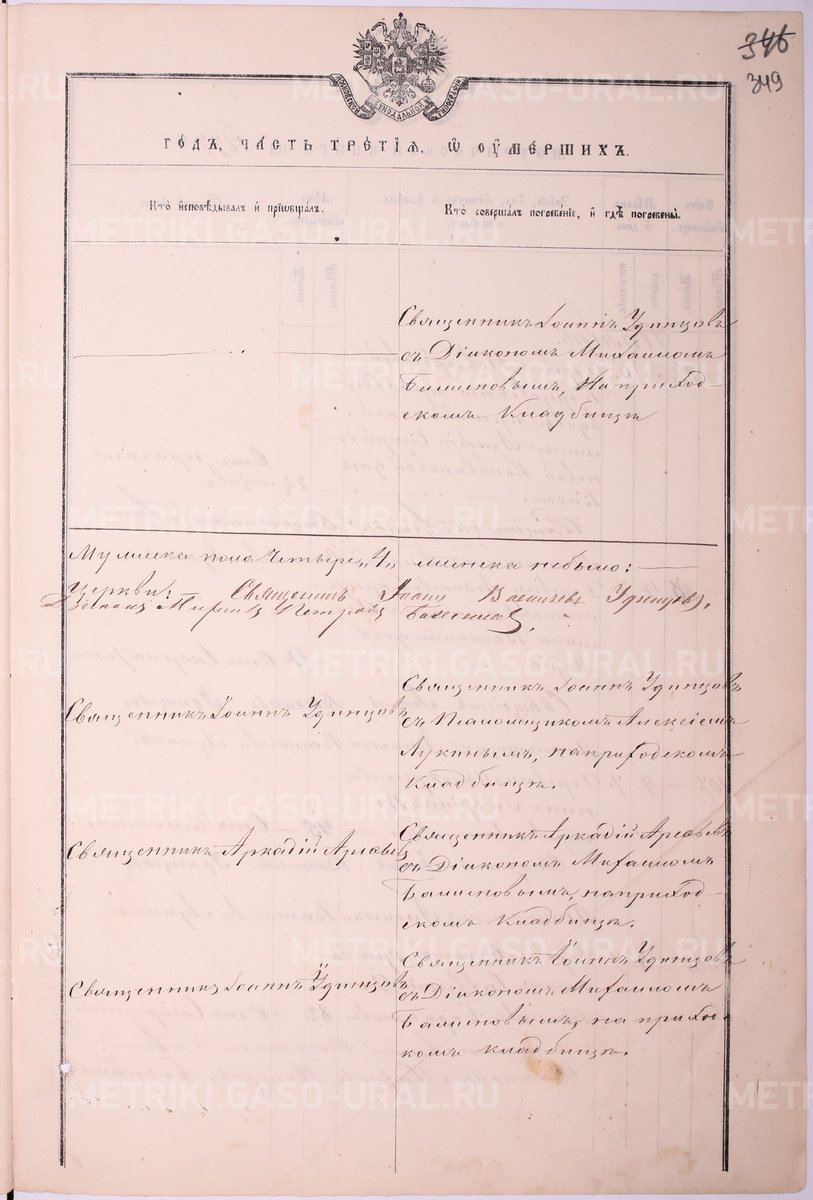 346
349
МОСКОВСКОЙ СѴНОДАЛЬНОЙ ТИПОГРАФІИ
ГОДЪ, ЧАСТЬ ТРЕТІЯ, Ѡ ОУМЕРШИХЪ.
Кто исповѣдывалъ и пріобщалъ.
Кто совершалъ погребеніе, и гдѣ погребены.
Священникъ Іоаннъ Удинцовъ
съ Діакономъ Михаиломъ
на приход-
скомъ Кладбищѣ
Мужеска пола четыре „4„ женска небыло:
Церкви: Священникъ Іоаннъ Удинцовъ.
Священникъ Іоаннъ Удинцовъ
Священникъ Іоаннъ Удинцовъ
съ Псаломщикомъ Алексіемъ
Лукинымъ, на приходскомъ
Кладбищѣ.
Священникъ Аркадій Арефьевъ
Священникъ Аркадій Арефьевъ
съ Діакономъ Михаиломъ
на приход-
скомъ Кладбищѣ.
Священникъ Іоаннъ Удинцовъ
Священникъ Іоаннъ Удинцовъ
съ Діакономъ Михаиломъ
на приход-
скомъ кладбищѣ.
METRIKI.GASO-URAL.RU